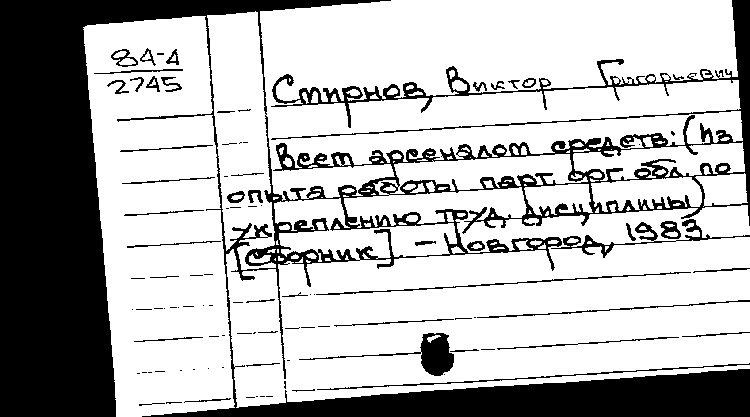 84-4
2745
Смирнов, Виктор Григорьевич
Всем арсеналом средств: (Из
опыта работы парт. орг. обл. по
укреплению труд. дисциплины)
[Сборник]. – Новгород, 1983.